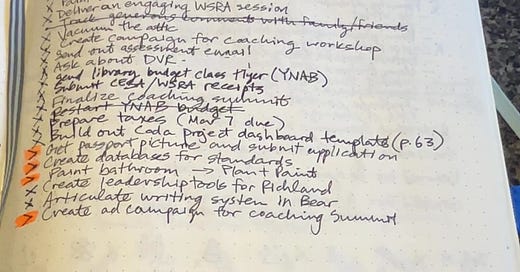 x Paint
x Deliver an engaging WSRA session
x Track generous comments with family/friends
x Vacuum the attic
x Create campaign for coaching workshop
x Send out assessment email
x Ask about DVR
x Send library budget class flyer (YNAB)
x Submit CESA/WSRA receipts
x Finalize coaching summit
x Restart YNAB budget
x Prepare taxes (Mar 7 due)
x Build out Coda project dashboard template (p. 63)
x Get passport picture and submit application
> Create databases for standards
> Paint bathroom → Plan + Paint
x Create leadership tools for Richland
x Articulate writing system in Bear
> Create ad campaign for coaching Summit